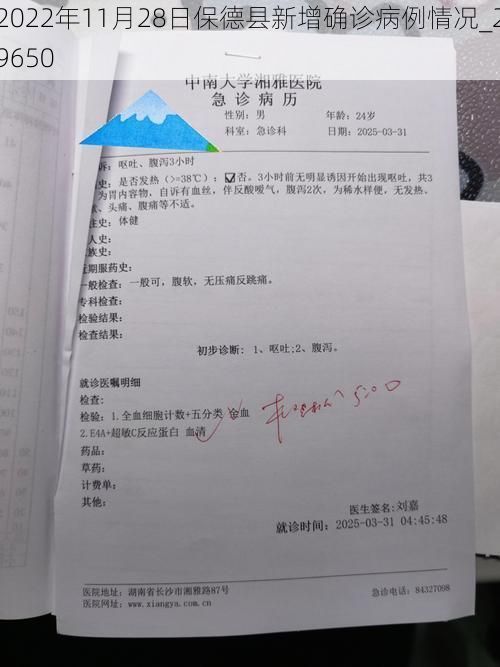 2022年11月28日保德县新增确诊病例情况_2
9650
中南大学湘雅医院
急 诊 病 历
性别：男 年龄：24岁
科室：急诊科 日期：2025-03-31
诉：呕吐、腹泻3小时
史：是否发热（>=38℃）：☑否。3小时前无明显诱因开始出现呕吐，共3
为胃内容物，自诉有血丝，伴反酸嗳气，腹泻2次，为稀水样便，无发热、
、头痛、腹痛等不适。
往史：体健
人史：
族史：
近期服药史：
一般检查：一般可，腹软，无压痛反跳痛。
专科检查：
检验结果：
检查结果：
初步诊断： 1、呕吐;2、腹泻。
就诊医嘱明细
检查：
检验：1.全血细胞计数+五分类 全血
2.E4A+超敏C反应蛋白 血清
药品：
草药：
计费单：
其他：
医生签名:刘嘉
就诊时间：2025-03-31 04:45:48
医院地址：湖南省长沙市湘雅路87号 急诊电话：84327098
医院网址：www.xiangya.com.cn